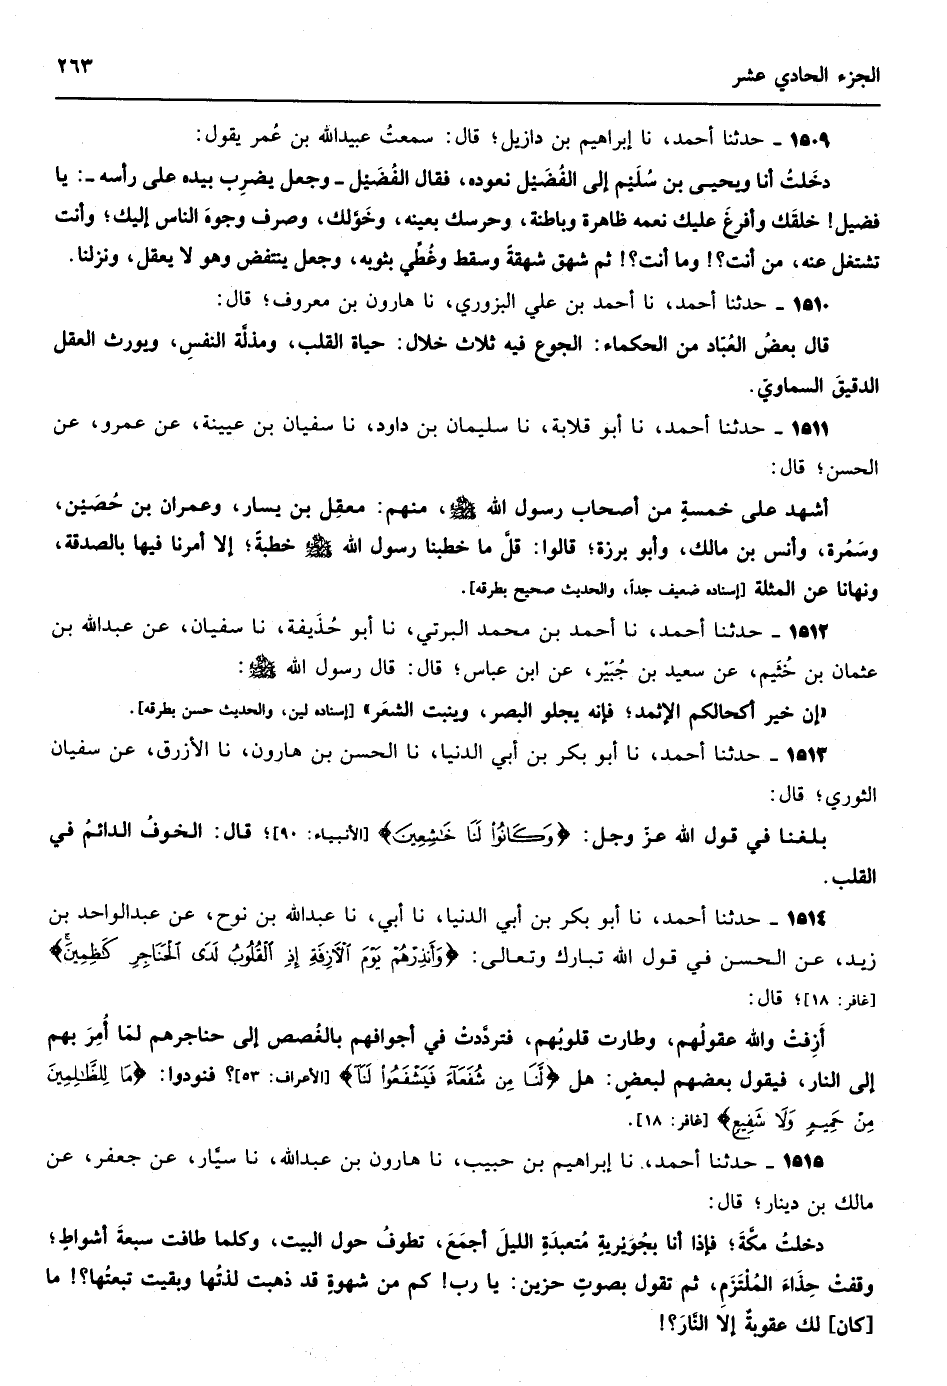 ٢٦٣
الجزء الحادي عشر
١٥٠٩ ـ حدثنا أحمد، نا إبراهيم بن دازيل؛ قال: سمعتُ عبيدالله بن عُمر يقول:
دخَلتُ أنا ويحيى بن سُلَيْم إلى الفُضَيْل نعوده، فقال الفُضَيْل ـ وجعل يضرِب بيده على رأسه ـ: يا
فضيل! خلقَك وأفرغَ عليك نعمه ظاهرة وباطنة، وحرسك بعينه، وخَوَّلك، وصرف وجوهَ الناس إليك؛ وأنت
تشتغل عنه، من أنت؟! وما أنت؟! ثم شهق شهقةً وسقط وغُطِّي بثوبه، وجعل ينتفض وهو لا يعقل، ونزلنا.
١٥١٠ ـ حدثنا أحمد، نا أحمد بن علي البزوري، نا هارون بن معروف؛ قال:
قال بعضُ العُبّاد من الحكماء: الجوع فيه ثلاث خلال: حياة القلب، ومذلَّة النفسِ، ويورث العقل
الدقيقَ السماويّ.
١٥١١ ـ حدثنا أحمد، نا أبو قلابة، نا سليمان بن داود، نا سفيان بن عيينة، عن عمرو، عن
الحسن؛ قال:
أشهد على خمسةٍ من أصحاب رسول الله ﷺ، منهم: معقِل بن يسار، وعمران بن حُصَيْن،
وسَمُرة، وأنس بن مالك، وأبو برزة؛ قالوا: قلَّ ما خطبنا رسول الله ﷺ خطبةً؛ إلا أمرنا فيها بالصدقة،
ونهانا عن المثلة [إسناده ضعيف جداً، والحديث صحيح بطرقه].
١٥١٢ ـ حدثنا أحمد، نا أحمد بن محمد البرتي، نا أبو حُذَيفة، نا سفيان، عن عبدالله بن
عثمان بن خُثَيم، عن سعيد بن جُبَيْر، عن ابن عباس؛ قال: قال رسول الله ﷺ:
«إن خير أكحالكم الإثمد؛ فإنه يجلو البصر، وينبت الشعَر» [إسناده لين، والحديث حسن بطرقه].
١٥١٣ ـ حدثنا أحمد، نا أبو بكر بن أبي الدنيا، نا الحسن بن هارون، نا الأزرق، عن سفيان
الثوري؛ قال:
بلغنا في قول الله عزّ وجل: ﴿وَكَانُوا۟ لَنَا خَـٰشِعِينَ﴾ [الأنبياء: ٩٠]؛ قال: الخوفُ الدائمُ في
القلب.
١٥١٤ ـ حدثنا أحمد، نا أبو بكر بن أبي الدنيا، نا أبي، نا عبدالله بن نوح، عن عبدالواحد بن
زيد، عن الحسن في قول الله تبارك وتعالى: ﴿وَأَنذِرْهُمْ يَوْمَ ٱلْآزِفَةِ إِذِ ٱلْقُلُوبُ لَدَى ٱلْحَنَاجِرِ كَـٰظِمِينَ ۚ﴾
[غافر: ١٨]؛ قال:
أَزِفتْ والله عقولُهم، وطارت قلوبُهم، فتردَّدتْ في أجوافهم بالغُصص إلى حناجرهم لمّا أُمِرَ بهم
إلى النار، فيقول بعضهم لبعضٍ: هل ﴿لَّنَا مِن شُفَعَآءَ فَيَشْفَعُوا۟ لَنَآ﴾ [الأعراف: ٥٣]؟ فنودوا: ﴿مَا لِلظَّـٰلِمِينَ
مِنْ حَمِيمٍ وَلَا شَفِيعٍ﴾ [غافر: ١٨].
١٥١٥ ـ حدثنا أحمد، نا إبراهيم بن حبيب، نا هارون بن عبدالله، نا سيَّار، عن جعفر، عن
مالك بن دينار؛ قال:
دخلتُ مكَّةَ؛ فإذا أنا بجُوَيْريةٍ مُتعبدَةٍ الليلَ أجمَعَ، تطوفُ حول البيت، وكلما طافت سبعةَ أشواطٍ؛
وقفتْ حِذَاءَ المُلْتَزَمِ، ثم تقول بصوتٍ حزين: يا رب! كم من شهوةٍ قد ذهبت لذتُها وبقيت تبعتُها؟! ما
[كان] لك عقوبةٌ إلا النَّارَ؟!